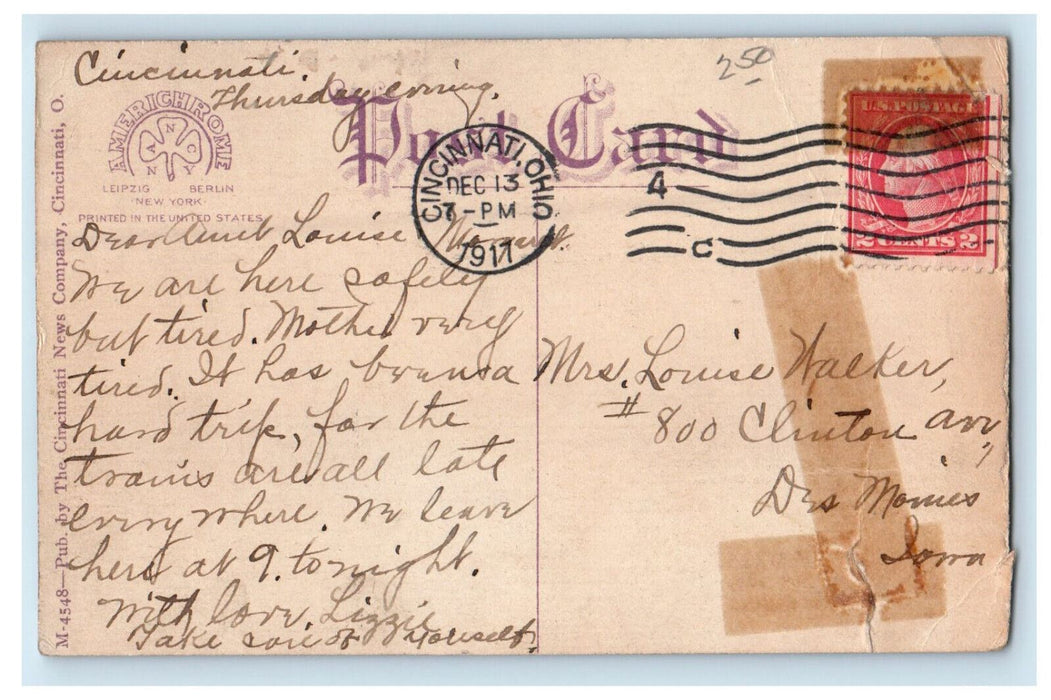 Cincinnati.
Thursday evening.
2 50
Post Card
AMERICHROME
A N C N Y
LEIPZIG BERLIN
NEW YORK
PRINTED IN THE UNITED STATES
CINCINNATI, OHIO
DEC 13
7-PM
1917
4
C
U.S. POSTAGE
2 CENTS 2
M-4548—Pub. by The Cincinnati News Company, Cincinnati, O.
Dear Aunt Louise
We are here safely
but tired. Mother very
tired. It has been a
hard trip, for the
trains are all late
everywhere. We leave
here at 9. tonight.
With love, Lizzie
Take care of yourself.
Mrs. Louise Walker,
# 800 Clinton Ave,
Des Moines
Iowa